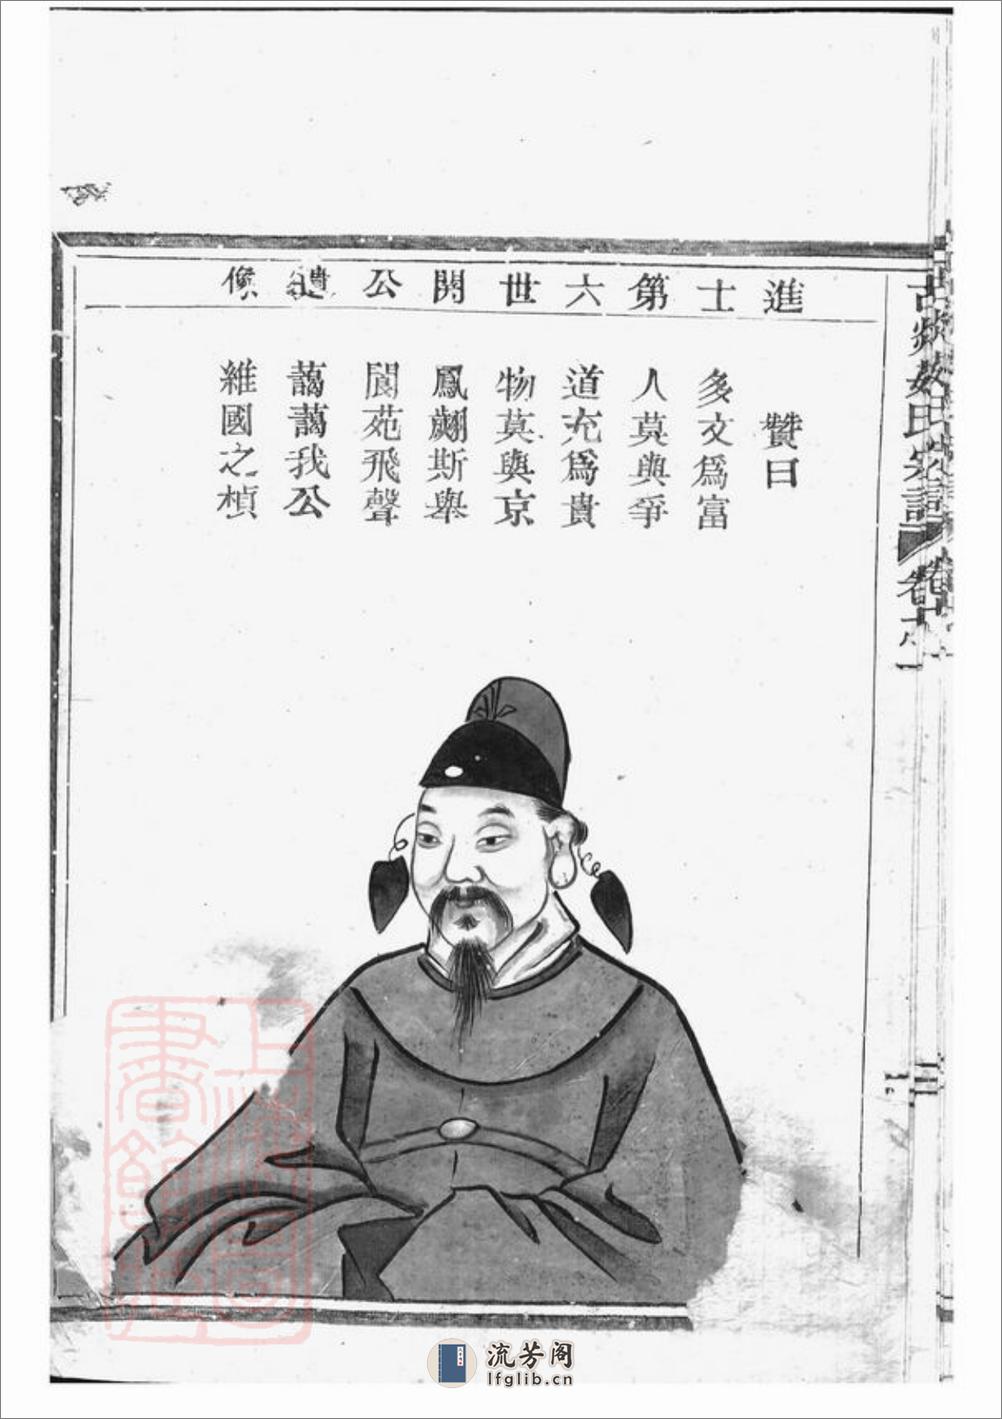 進士第六世開公遺像
贊曰
多文爲富
人莫與爭
道充爲貴
物莫與京
鳳翽斯舉
閬苑飛聲
藹藹我公
維國之楨
氏宗譜
流芳阁
lfglib.cn